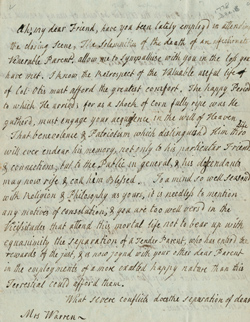 Ah my dear Friend, have you been lately employed in attending
the closing Scene, The Solemnities of the death of an affectionate
Venerable Parent; allow me to Sympathize with you in the Loss you
have met. I know the Retrospect of the Valuable useful life
of Col Otis must afford the greatest comfort. The happy Period
to which He arriv'd, for as a shock of corn fully ripe was He
gatherd, must engage your acquiescence in the will of Heaven
That benevolence & Patriotism which distinguishd Him thro Life
will ever endear his memory, not only to his particular Friends
& connections, but to the Public in general, & his descendants
may now rise, & call him Blessed. To a mind so well seasoned
with Religion & Philosophy as yours, it is needless to mention
any motives of consolation, & you are too well versd in the
Vicissitudes that attend this mortal life not to bear up with
equanimity the Separation of a Tender Parent, who has entered the
rewards of the just, & is now joynd with your other dear Parent
in the employments of a more exalted happy nature than this
Terrestrial could afford them.
What severe conflicts does the separation of dear
Mrs Warren